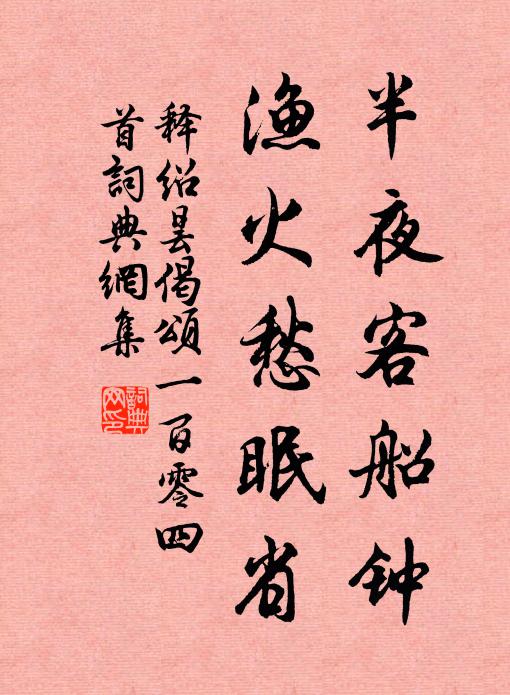 半夜客船钟
渔火愁眠省
释绍昙偈颂一百零四
首词典網集
詞典网印